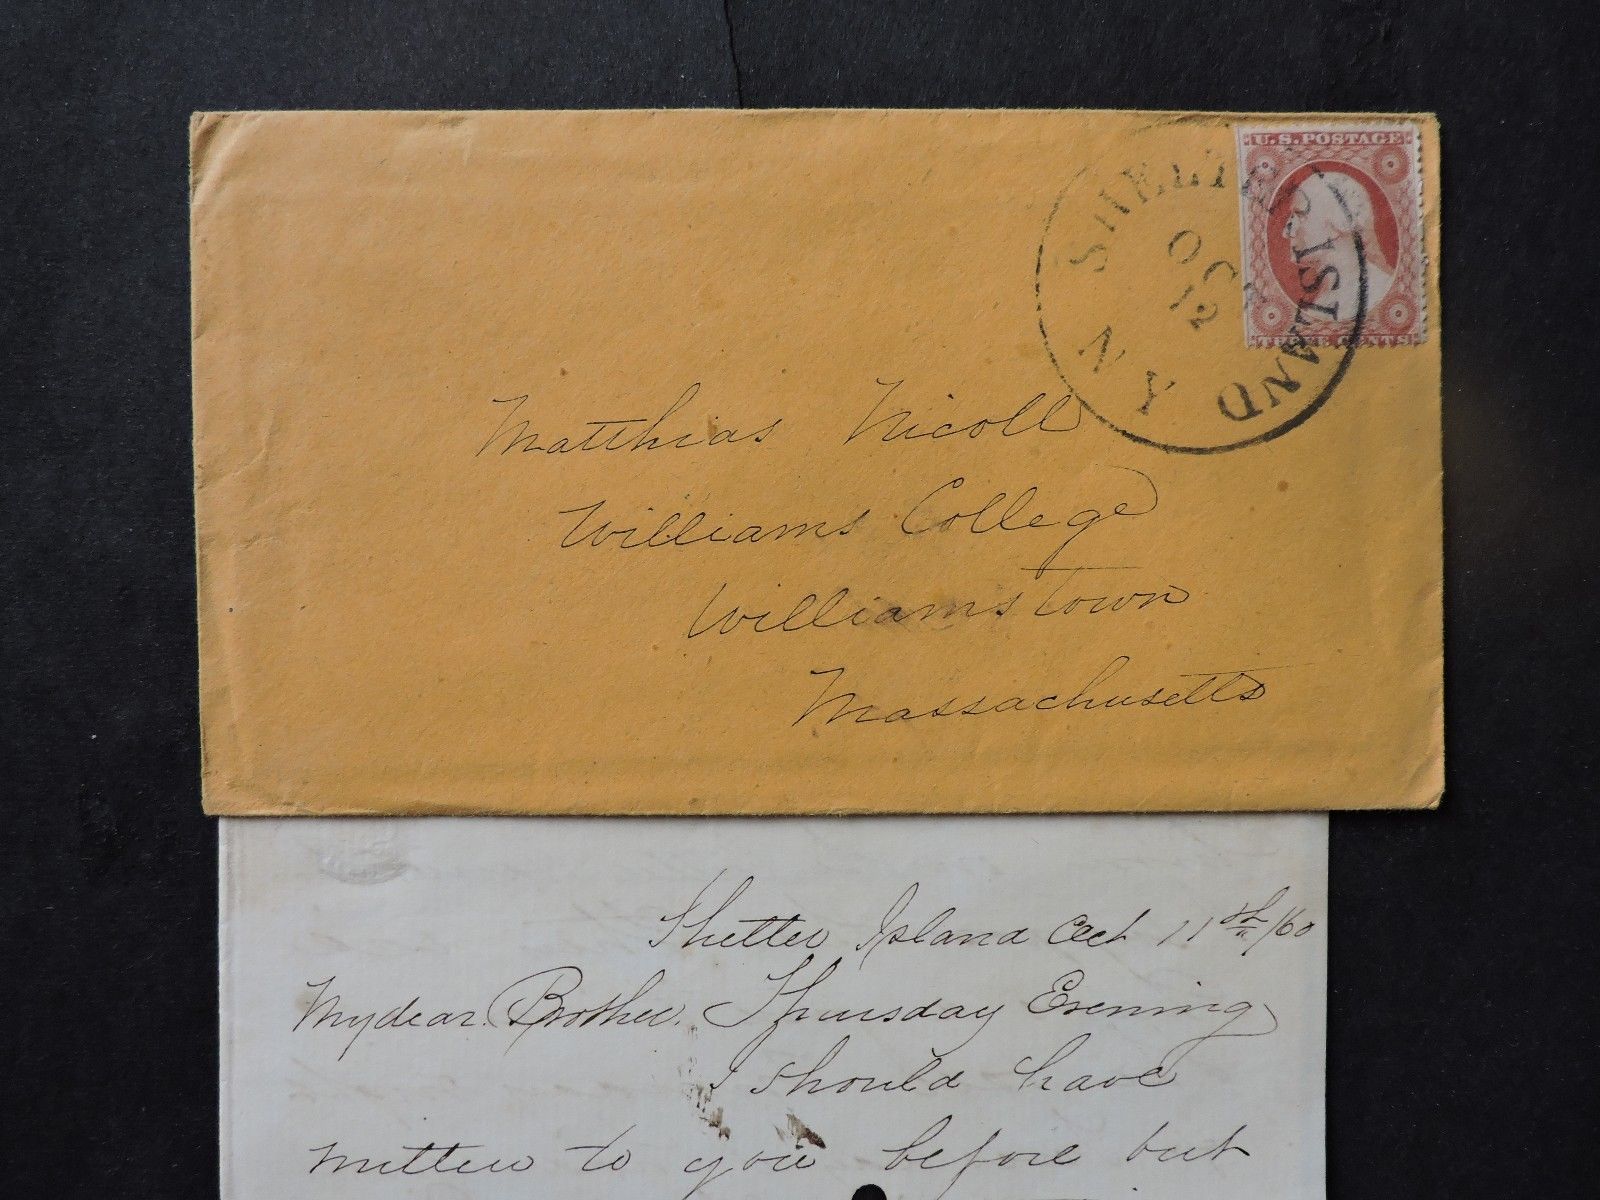 U.S. POSTAGE
THREE CENTS
SHELTER ISLAND
N Y
OCT
12
Matthias Nicoll
Williams College
Williamstown
Massachusetts
Shelter Island Oct 11th/60
My dear Brother. Thursday Evening
I should have
written to you before but